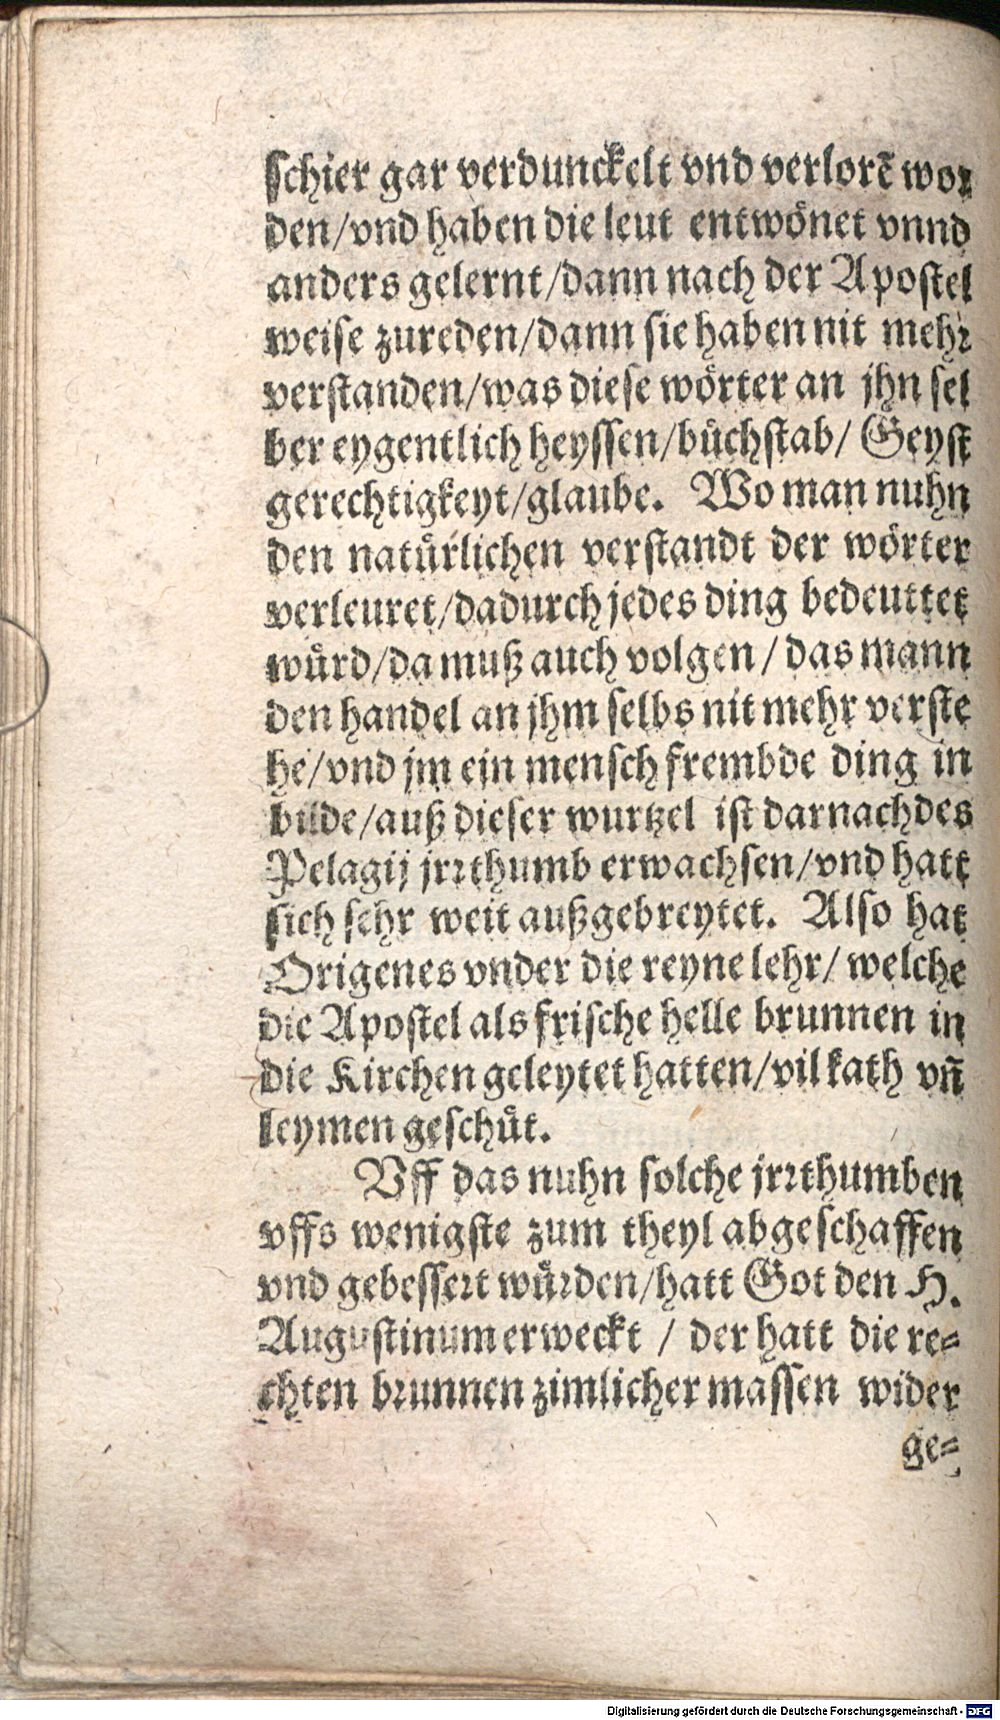 schier gar verdunckelt vnd verlorẽ wor
den/vnd haben die leut entwönet vnnd
anders gelernt/dann nach der Apostel
weise zureden/dann sie haben nit mehr
verstanden/was diese wörter an jhn sel
ber eygentlich heyssen/bůchstab/ Geyst
gerechtigkeyt/glaube. Wo man nuhn
den natürlichen verstandt der wörter
verleuret/dadurch jedes ding bedeuttet
würd/da muß auch volgen / das mann
den handel an jhm selbs nit mehr verste
he/vnd jm ein mensch frembde ding in
bilde/auß dieser wurtzel ist darnach des
Pelagij jrrthumb erwachsen/vnd hatt
sich sehr weit außgebreytet. Also hat
Origenes vnder die reyne lehr/ welche
die Apostel als frische helle brunnen in
die Kirchen geleytet hatten/vil kath vñ
leymen geschüt.
Vff das nuhn solche jrrthumben
vffs wenigste zum theyl abgeschaffen
vnd gebessert würden/hatt Got den H.
Augustinum erweckt / der hatt die re-
chten brunnen zimlicher massen wider
ge-
Digitalisierung gefördert durch die Deutsche Forschungsgemeinschaft - DFG